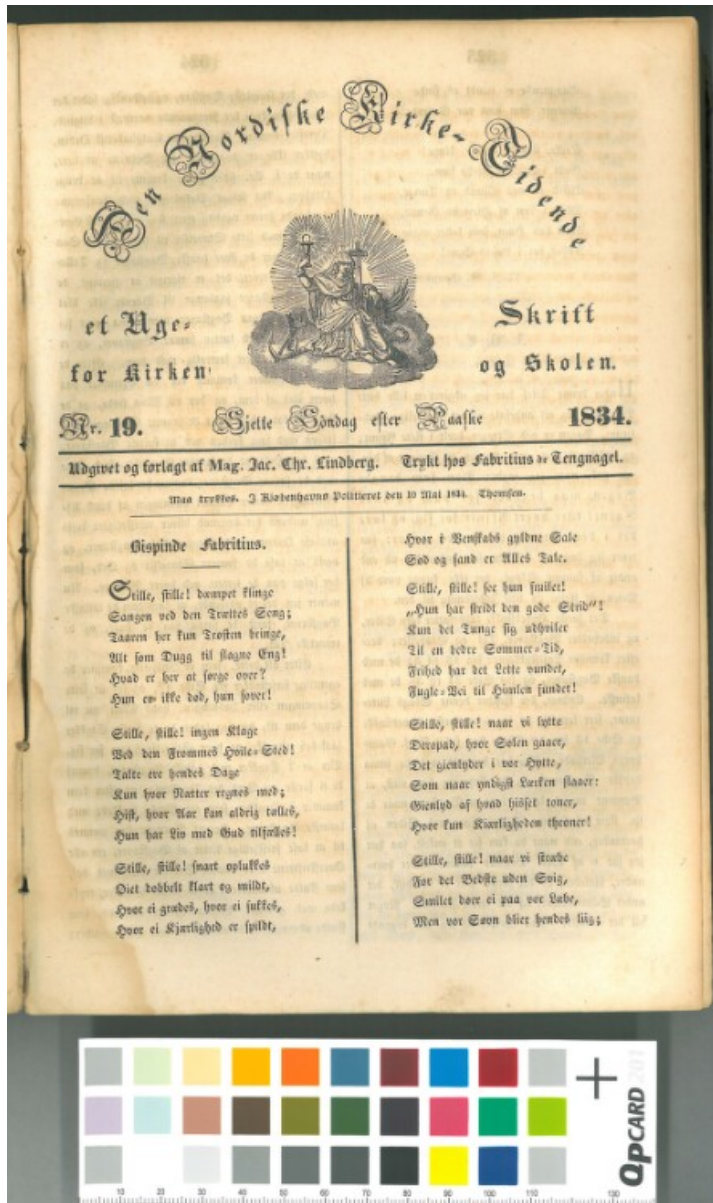 Den Nordiske Kirke-Tidende
et Uge-
Skrift
for Kirken
og Skolen.
Nr. 19.
Sjette Söndag efter Paaske
1834.
Udgivet og forlagt af Mag. Jac. Chr. Lindberg. Trykt hos Fabritius de Tengnagel.
Maa trykkes. I Kjøbenhavns Politieret den 10 Mai 1834. Thomsen.
Bispinde Fabritius.
Stille, stille! dæmpet klinge
Sangen ved den Trættes Seng;
Taaren her kun Trøsten bringe,
Alt som Dugg til slagne Eng!
Hvad er her at sørge over?
Hun er ikke død, hun sover!
Stille, stille! ingen Klage
Ved den Frommes Hvile-Sted!
Talte ere hendes Dage
Kun hvor Nætter regnes med;
Hist, hvor Aar kan aldrig tælles,
Hun har Liv med Gud tilfælles!
Stille, stille! snart oplukkes
Øiet dobbelt klart og mildt,
Hvor ei grædes, hvor ei sukkes,
Hvor ei Kjærlighed er spildt,
Hvor i Venskabs gyldne Sale
Sød og sand er Alles Tale.
Stille, stille! see hun smiler!
„Hun har stridt den gode Strid"!
Kun det Tunge sig udhviler
Til en bedre Sommer-Tid,
Frihed har det Lette vundet,
Fugle-Vei til Himlen fundet!
Stille, stille! naar vi lytte
Deropad, hvor Solen gaaer,
Det gienlyder i vor Hytte,
Som naar yndigst Lærken slaaer:
Gienlyd af hvad hisset toner,
Hvor kun Kiærligheden throner!
Stille, stille! naar vi stræbe
For det Bedste uden Svig,
Smilet døer ei paa vor Læbe,
Men vor Søvn blier hendes liig;
QPCARD 201
10 20 30 40 50 60 70 80 90 100 110 120 130